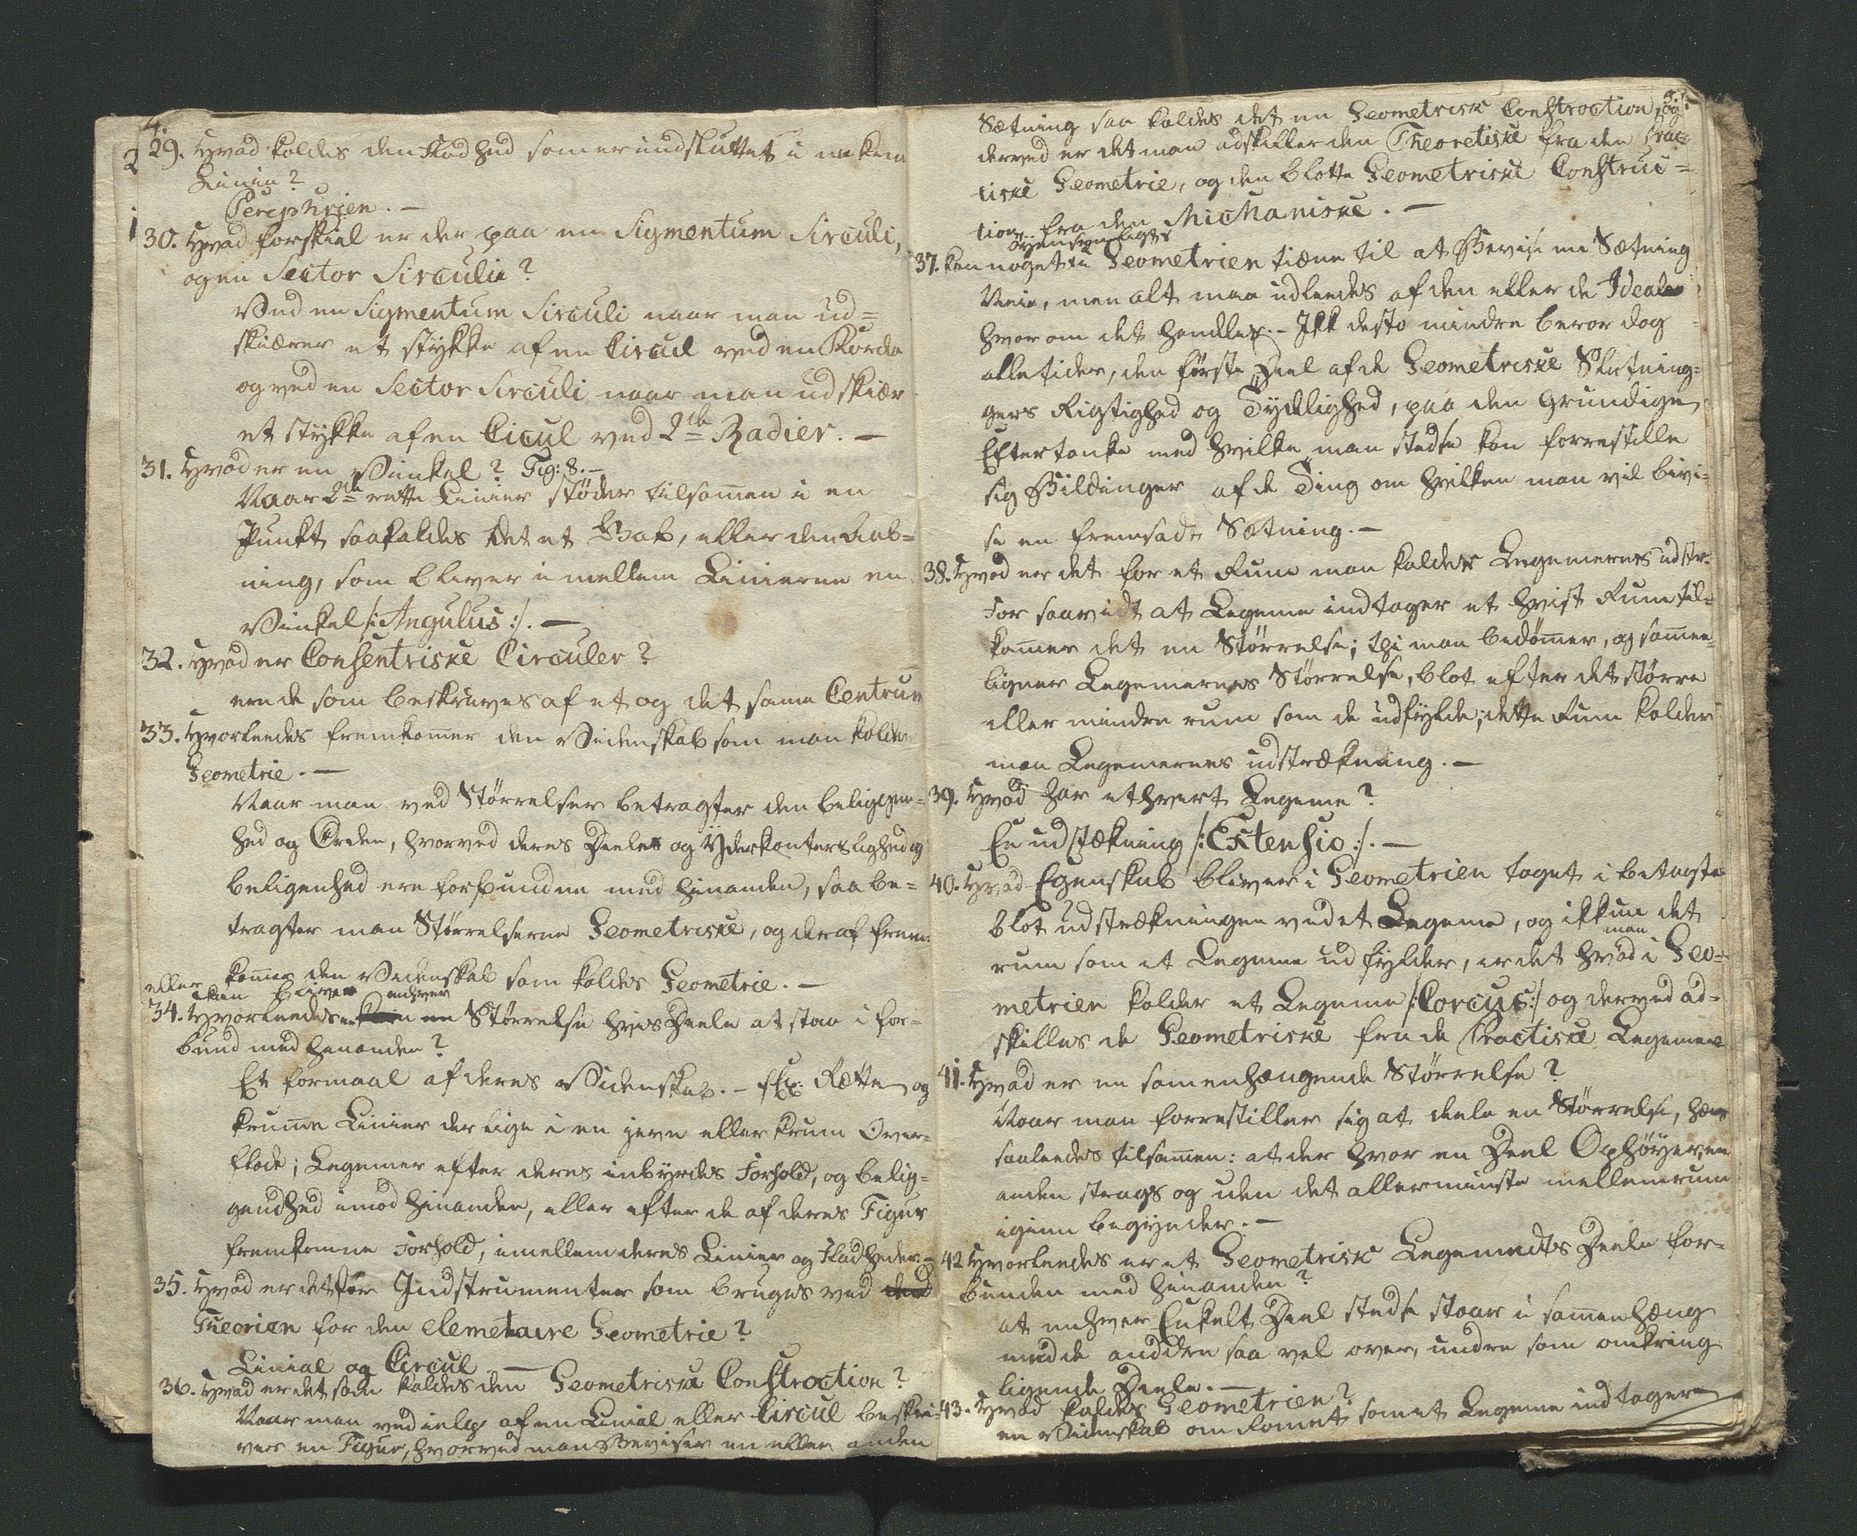 4.
29. Hvad kaldes den Fladhed som er indsluttet i en krum
Linie?
Perephrien. —
30. Hvad forskiel er der paa en Sigmentum Sirculi,
og en Sector Sirculie?
Ved en Sigmentum Sirculi naar man ud=
skiærer et stykke af en Circul ved en Korda
og ved en Sector Sirculi naar man udskiær
et stykke af en Cicul ved 2de Radier. —
31. Hvad er en Vinkel? Fig: 8. —
Naar 2de rette Linier støder tilsamen i en
Punkt saa kaldes det et Gab, eller den Aab=
ning, som bliver imellem Linierne en
Vinkel /: Angulus :/. —
32. Hvad er Consentriske Circuler?
ere de som beskrives af et og det same Centrum
33. Hvorleedes fremkomer den Videnskab som man kalder
Geometrie. —
Naar man ved Størrelser betragter den beliggen=
hed og Orden, hvorved deres Deele og Yderkanters lighed og
beligenhed ere forbundne med hinanden, saa be=
tragter man Størrelserne Geometriske, og deraf frem=
komer den Videnskab som kaldes Geometrie. —
eller kan bliver enhver
34. Hvorleedes er en Størrelse hvis Deele at staa i for=
bund med hinanden?
Et formaal af deres Videnskab. — f Ex: Rette og
krumme Linier der lige i en jevn eller krum Over=
flade; Legemer efter deres inbyrdes Forhold, og belig=
gendhed imod hinanden, eller efter de af deres Figur
fremkomne Forhold, imellem deres Linier og Fladheder. —
35. Hvad er det for Indstrumenter som bruges ved den
Theorien for den elemetaire Geometrie?
Linial og Circul —
36. Hvad er det som kaldes den Geometriske Constroction?
Naar man ved ielp af en Linial eller Circul beskri=
ver en Figur, hvorved man Beviser en eller anden
5.
Sætning saa kaldes det en Geometrisk Constroction, og
derved er det man adskiller den Theoretiske fra den Prac=
tiske Geometrie, og den blotte Geometriske Construc=
tion fra den Michaniske. —
Øyensynligts
37. kan noget i Geometrien tiæne til at Bevise en Sætning
Neie, men alt maa udleedes af den eller de Ideale
hvorom det handles. — Ikke desto mindre beror dog
alletider, den første Deel af de Geometriske Slutning=
gers Rigtighed og Tydelighed, paa den grundige
Eftertanke med hvilke man stedse kan forrestille
sig Bildinger af de Ting om hvilken man vil bevi=
se en fremsadt Sætning. —
38. Hvad er det for et Rum man kalder Legemernes udstr.
For saavidt at Legeme indtager et hvist Rum til=
komer det en Størrelse; thi man bedømer, og samen=
ligner Legemernes Størrelse, blot efter det større
eller mindre rum som de udfylde; dette Rum kalder
man Legemernes udstrækning. —
39. Hvad har ethvert Legeme?
En udstækning /: Extensio :/. —
40. Hvad Egenskab bliver i Geometrien taget i betagte
blot udstrækningen ved et Legeme, og ikkun det
man
rum som et Legeme udfylder, er det hvad i Geo=
metrien kalder et Legeme /: Corcus :/ og derved ad=
skilles de Geometriske fra de Practiske Legemer
41. Hvad er en samenhængende Størrelse?
Naar man forrestiller sig at deele en Størrelse, hæn
saaleedes tilsamen: at der hvor en Deel Ophøyer, en
anden strags og uden det allerminste mellemrum
igien begynder. —
42 Hvorleedes er et Geometrisk Legemedts Deele for=
bunden med hinanden?
at enhver Enkelt Deel stedse staar i samenhæng
med de andden saa vel over, undre som omkring
ligende Deele. —
43. Hvad kaldes Geometrien?
en Videnskab om Romet som et Legeme indtager